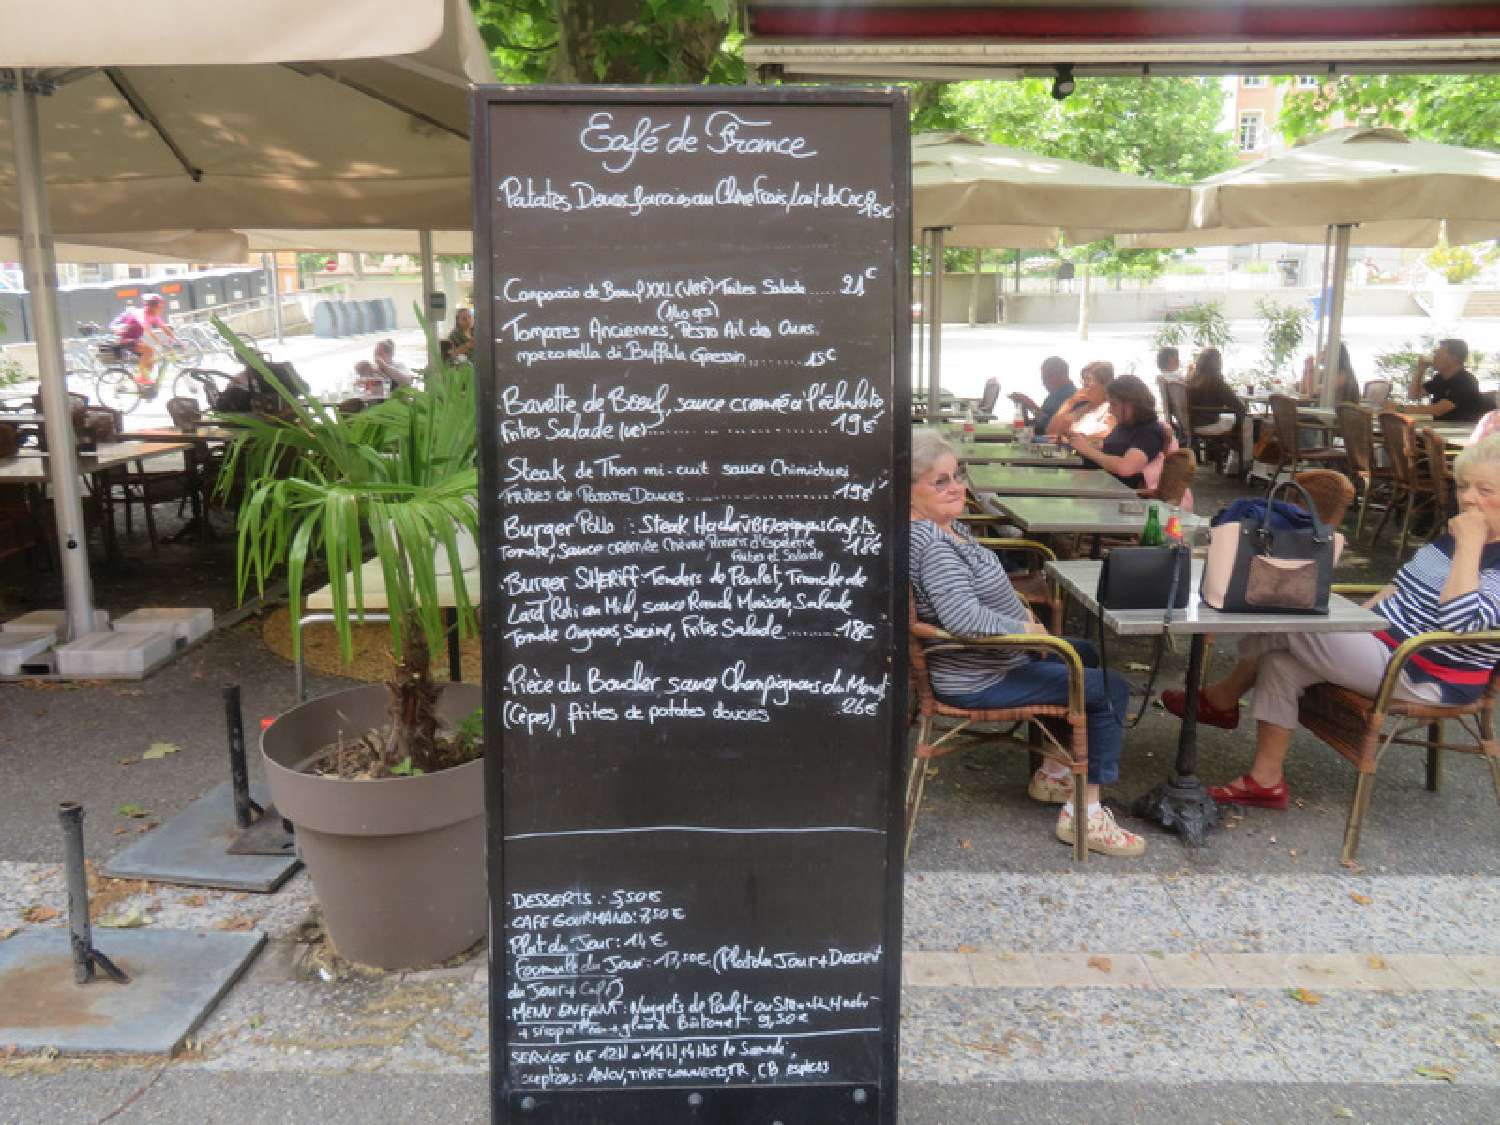 Café de France
Patates Douces farcies au Chèvre Frais, Lait de Coco
15€
Carpaccio de Boeuf XXL (VBF) Frites Salade ..... 21€
(140 grs)
Tomates Anciennes, Pesto Ail des Ours.
mozzarella di Buffala Gressin ......... 15€
Bavette de Boeuf, sauce cremée à l'échalote
Frites Salade ........ 19€
Steak de Thon mi-cuit sauce Chimichuri
Frites de Patates Douces ............ 19€
Burger Pollo : Steak Haché VBF, oignons Confits,
Tomate, sauce cremée Chèvre Piment d'Espelette 18€
Frites et Salade
Burger SHERIFF: Tenders de Poulet, Tranche de
Lard Roti au Miel, sauce Ranch Maison, Salade
Tomate Oignons, Frites Salade ....... 18€
Pièce du Boucher sauce Champignons du Moment
(Cèpes), frites de patates douces 26€
DESSERTS : 5,50€
CAFE GOURMAND: 7,50€
Plat du Jour : 14€
Formule du Jour : 17,50€ (Plat du Jour + Dessert
du Jour + Café)
MENU ENFANT : Nuggets de Poulet ou Steak Haché
+ sirop à l'eau + glace Bâtonnet 9,50€
SERVICE DE 12H à 14H, 14H15 le Samedi.
ceptions: ANCV, TITRE CONNECTES, TR, CB, espèces